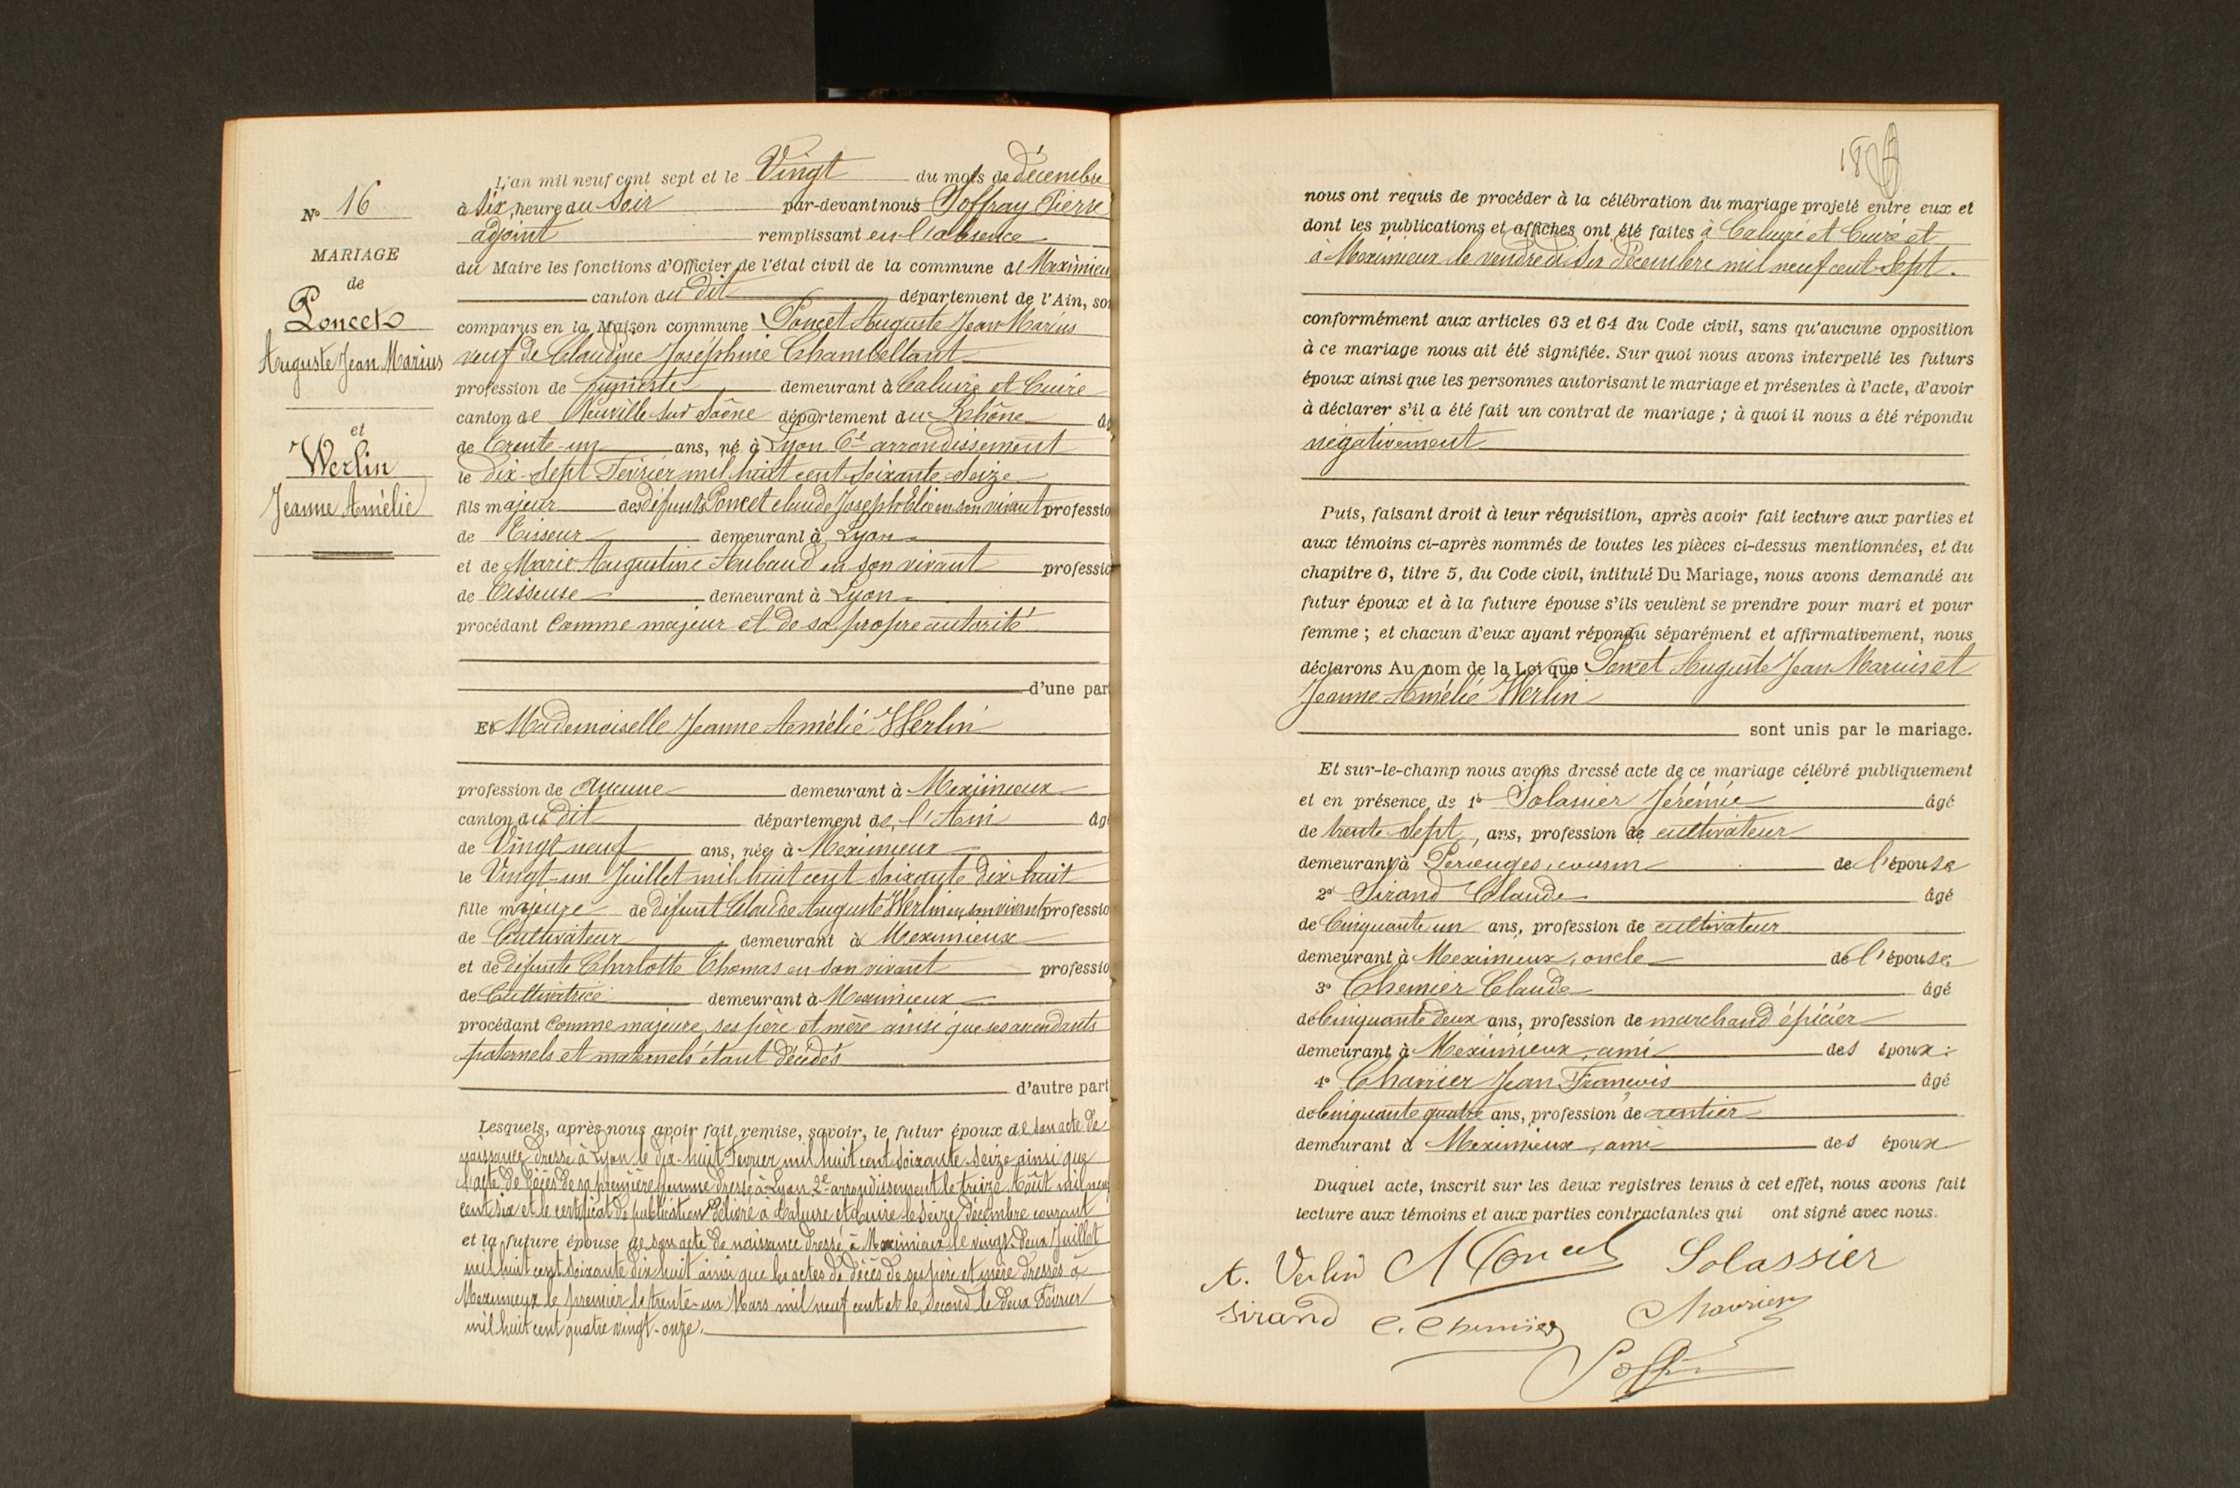 N° 16
MARIAGE
de
Poncet
Auguste Jean Marius
et
Werlin
Jeanne Amélie
L'an mil neuf cent sept et le Vingt du mois de décembre
à six heure du Soir par-devant nous Joffray Pierre
adjoint remplissant en l'absence
du Maire les fonctions d'Officier de l'état civil de la commune de Meximieu
canton du dit département de l'Ain, son
comparus en la Maison commune Poncet Auguste Jean Marius
veuf de Claudine Joséphine Chambellant
profession de demeurant à Caluire et Cuire
canton de Neuville sur Saône département du Rhône âg
de Trente-un ans, né à Lyon 6e arrondissement
le dix-sept Février mil huit cent soixante seize
fils majeur des défunts Poncet claude Joseph Elie en son vivant professio
de Tisseur demeurant à Lyon
et de Marie Augustine Aubaud en son vivant professio
de Tisseuse demeurant à Lyon
procédant Comme majeur et de sa propre autorité
d'une par
Et Mademoiselle Jeanne Amélie Werlin
profession de aucune demeurant à Meximieux
canton du dit département de l'Ain âgé
de Vingt neuf ans, née à Meximieux
le Vingt-un Juillet mil huit cent soixante dix huit
fille majeure de défunt Claude Auguste Werlin en son vivant professio
de Cultivateur demeurant à Meximieux
et de défunte Charlotte Thomas en son vivant professio
de Cultivatrice demeurant à Meximieux
procédant Comme majeure, ses père et mère ainsi que ses ascendants
paternels et maternels étant décédés
d'autre part
Lesquels, après nous avoir fait remise, savoir, le futur époux de son acte de
naissance dressé à Lyon le dix-huit Février mil huit cent soixante seize ainsi que
l'acte de décès de sa première femme dressé à Lyon 2e arrondissement le treize Août mil neuf
cent six et le certificat de publication délivré à Caluire et Cuire le seize décembre courant
et la future épouse de son acte de naissance dressé à Meximieux le vingt-deux Juillet
mil huit cent soixante dix huit ainsi que les actes de décès de ses père et mère dressés à
Meximieux le premier le trente-un Mars mil neuf cent et le second le deux Février
mil huit cent quatre vingt-onze.
18
nous ont requis de procéder à la célébration du mariage projeté entre eux et
dont les publications et affiches ont été faites à Caluire et Cuire et
à Meximieux le vendredi six décembre mil neuf cent sept.
conformément aux articles 63 et 64 du Code civil, sans qu'aucune opposition
à ce mariage nous ait été signifiée. Sur quoi nous avons interpellé les futurs
époux ainsi que les personnes autorisant le mariage et présentes à l'acte, d'avoir
à déclarer s'il a été fait un contrat de mariage ; à quoi il nous a été répondu
négativement
Puis, faisant droit à leur réquisition, après avoir fait lecture aux parties et
aux témoins ci-après nommés de toutes les pièces ci-dessus mentionnées, et du
chapitre 6, titre 5, du Code civil, intitulé Du Mariage, nous avons demandé au
futur époux et à la future épouse s'ils veulent se prendre pour mari et pour
femme ; et chacun d'eux ayant répondu séparément et affirmativement, nous
déclarons Au nom de la Loi que Poncet Auguste Jean Marius et
Jeanne Amélie Werlin
sont unis par le mariage.
Et sur-le-champ nous avons dressé acte de ce mariage célébré publiquement
et en présence de 1° Solassier Jérémie âgé
de trente-sept, ans, profession de cultivateur
demeurant à Perouges, cousin de l'épouse
2° Sirand Claude âgé
de Cinquante un ans, profession de cultivateur
demeurant à Meximieux, oncle de l'épouse
3° Chemier Claude âgé
de Cinquante deux ans, profession de marchand épicier
demeurant à Meximieux, ami des époux
4° Charrier Jean François âgé
de Cinquante quatre ans, profession de rentier
demeurant à Meximieux, ami des époux
Duquel acte, inscrit sur les deux registres tenus à cet effet, nous avons fait
lecture aux témoins et aux parties contractantes qui ont signé avec nous.
A. Verlin Poncet Solassier
Sirand C. Chemier Charrier